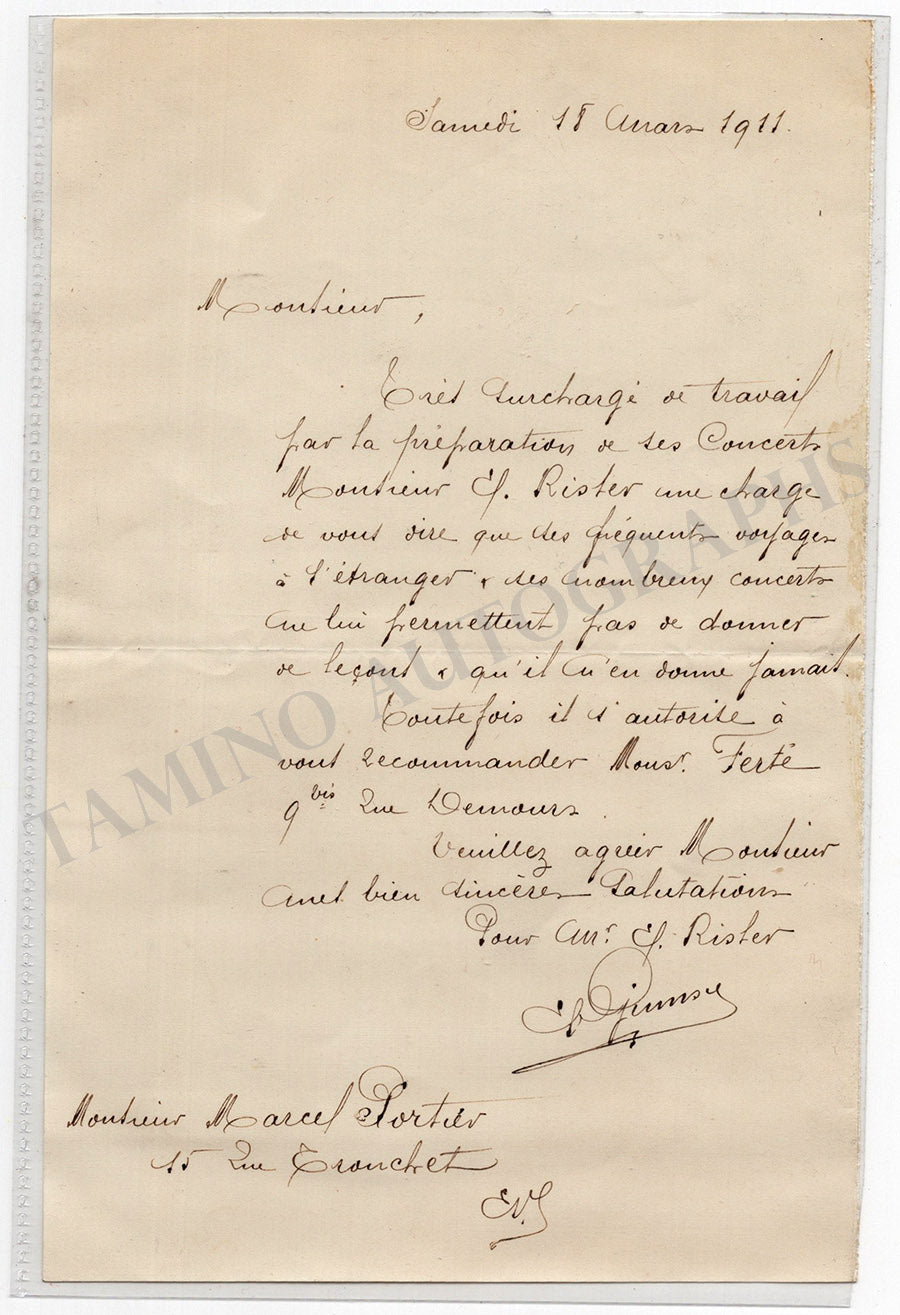 Samedi 18 Mars 1911.
Monsieur,
Très surchargé de travail
par la préparation de ses Concerts
Monsieur E. Risler me charge
de vous dire que ses fréquents voyages
à l'étranger & ses nombreux concerts
ne lui permettent pas de donner
de leçons & qu'il n'en donne jamais.
Toutefois il s'autorise à
vous recommander Monsr. Ferté
9 bis Rue Demours
Veuillez agréer Monsieur
mes bien sincères Salutations
Pour Mr. E. Risler
Monsieur Marcel Portier
15 Rue Tronchet
E.V.
TAMINO AUTOGRAPHS